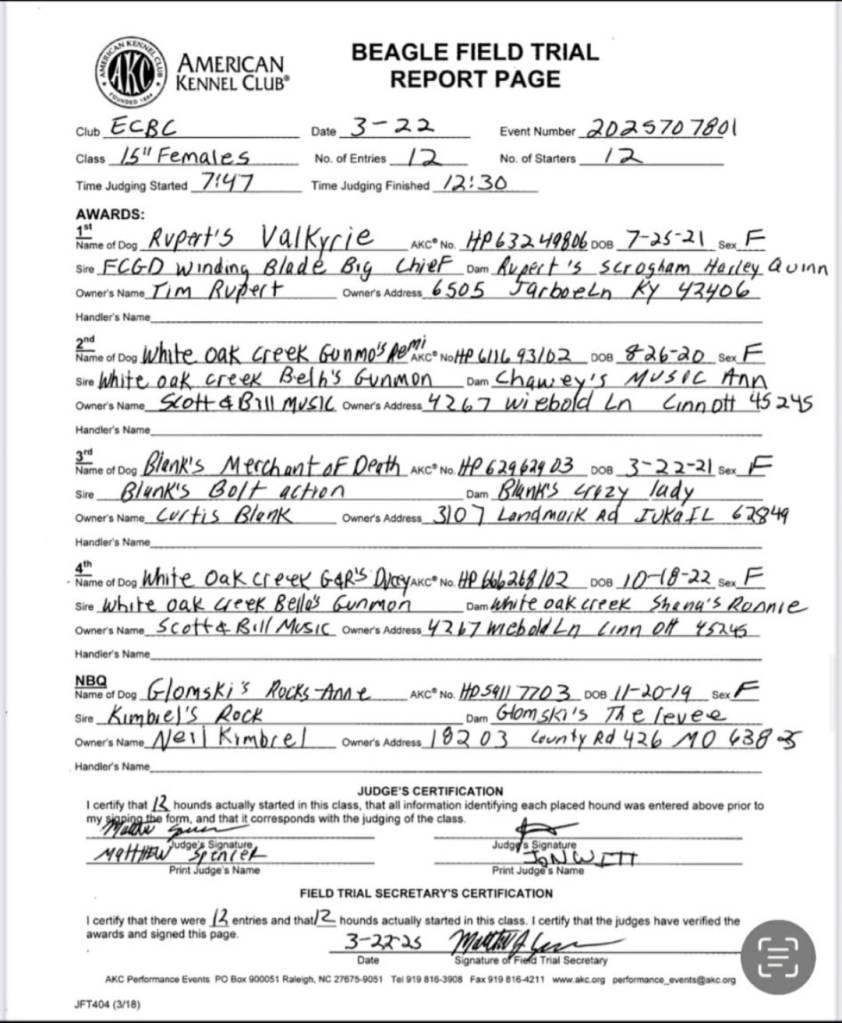 AMERICAN KENNEL CLUB FOUNDED 1884
AKC
AMERICAN
KENNEL CLUB®
BEAGLE FIELD TRIAL
REPORT PAGE
Club ECBC Date 3-22 Event Number 2025707801
Class 15" Females No. of Entries 12 No. of Starters 12
Time Judging Started 7:47 Time Judging Finished 12:30
AWARDS:
1st
Name of Dog Rupert's Valkyrie AKC® No. HP63249806 DOB 7-25-21 Sex F
Sire FCGD Winding Blade Big Chief Dam Rupert's Scrogham Harley Quinn
Owner's Name Tim Rupert Owner's Address 6505 Jarboe Ln KY 42406
Handler's Name
2nd
Name of Dog White oak creek Gunmo's Remi AKC® No. HP61169302 DOB 8-26-20 Sex F
Sire White oak creek Gunmon Dam MUSIC Ann
Owner's Name Scott & Bill MUSIC Owner's Address 4267 Wiebold Ln 45245
Handler's Name
3rd
Name of Dog Blank's Merchant of Death AKC® No. HP62962903 DOB 3-22-21 Sex F
Sire Blank's Bolt action Dam Blank's crazy lady
Owner's Name Curtis Blank Owner's Address 3107 Landmark Rd IUKA IL 62849
Handler's Name
4th
Name of Dog White Oak creek G&R'S AKC® No. HP66626802 DOB 10-18-22 Sex F
Sire White oak creek Gunmon Dam White oak creek Shana's Ronnie
Owner's Name Scott & Bill MUSIC Owner's Address 4267 Wiebold Ln 45245
Handler's Name
NBQ
Name of Dog Glomski's Rocks-Anne AKC® No. HP59117703 DOB 11-20-19 Sex F
Sire Kimbrel's Rock Dam Glomski's The levee
Owner's Name Neil Kimbrel Owner's Address 18203 County Rd 426 MO
Handler's Name
JUDGE'S CERTIFICATION
I certify that 12 hounds actually started in this class, that all information identifying each placed hound was entered above prior to
my signing the form, and that it corresponds with the judging of the class.
Judge's Signature Judge's Signature
MATTHEW Spencer JON WITT
Print Judge's Name Print Judge's Name
FIELD TRIAL SECRETARY'S CERTIFICATION
I certify that there were 12 entries and that 12 hounds actually started in this class. I certify that the judges have verified the
awards and signed this page.
3-22-25
Date Signature of Field Trial Secretary
AKC Performance Events PO Box 900051 Raleigh, NC 27675-9051 Tel 919 816-3908 Fax 919 816-4211 www.akc.org performance_events@akc.org
JFT404 (3/18)